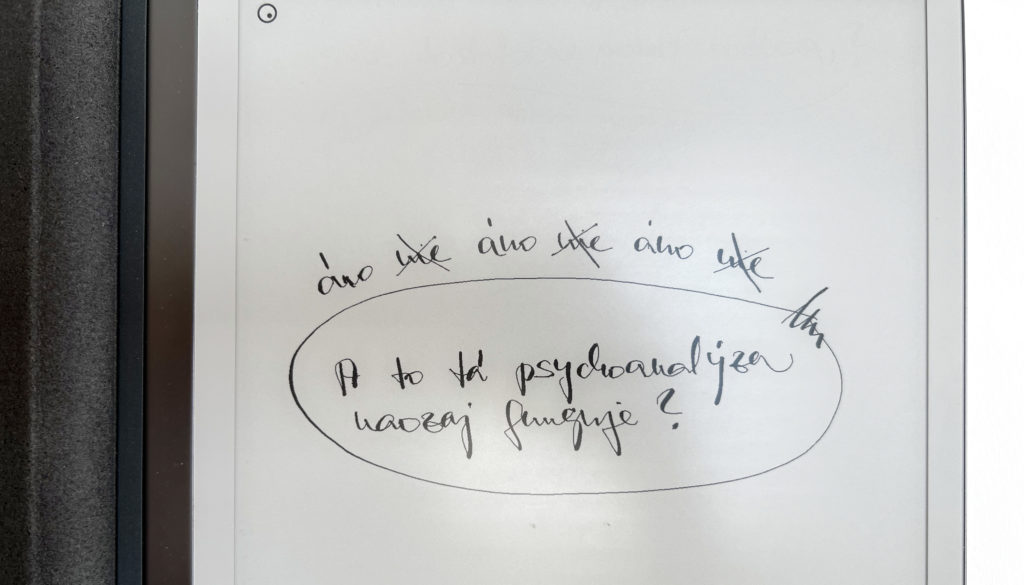 áno nie áno nie áno nie
A to tá psychoanalýza
naozaj funguje?